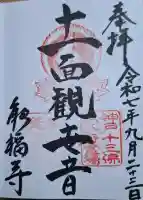 奉拝
令和七年九月二十三日
十一面観世音